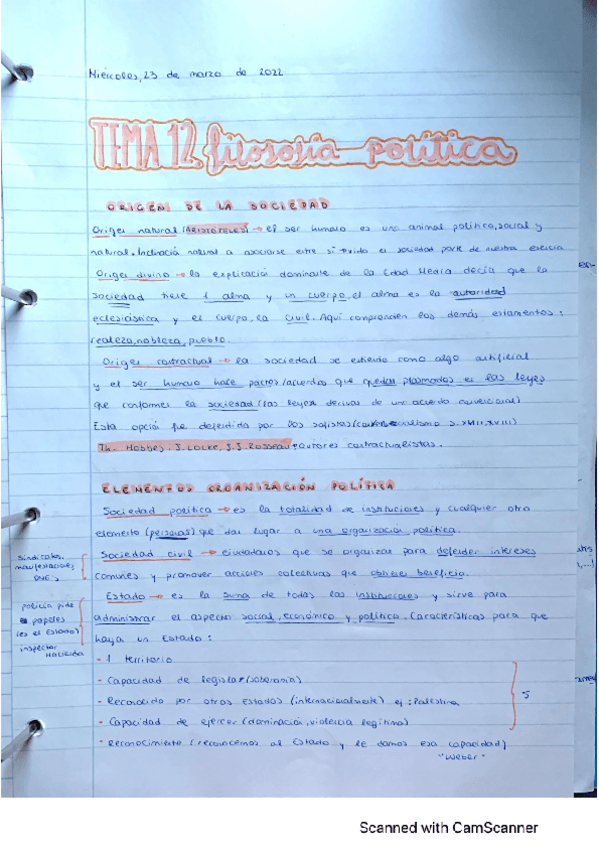 Miércoles, 23 de marzo de 2022
TEMA 12. filosofía política
ORIGEN DE LA SOCIEDAD
Origen natural (ARISTÓTELES) → el ser humano es un animal político, social y
natural. Inclinación natural a asociarse entre sí siendo la sociedad parte de nuestra esencia
Origen divino → la explicación dominante de la Edad Media decía que la
sociedad tiene 1 alma y un cuerpo, el alma es la autoridad
eclesiástica y el cuerpo, la civil. Aquí comprenden los demás estamentos:
realeza, nobleza, pueblo.
Origen contractual → la sociedad se entiende como algo artificial
y el ser humano hace pactos/acuerdos que quedan plasmados en las leyes
que conforman la sociedad (las leyes derivan de un acuerdo convencional)
Esta opción fue defendida por los sofistas (contractualismo s. XVII, XVIII)
Th. Hobbes, J. Locke, J.J. Rosseau → autores contractualistas.
ELEMENTOS ORGANIZACIÓN POLÍTICA
Sociedad política → es la totalidad de instituciones y cualquier otro
elemento (personas) que dan lugar a una organización política.
Sociedad civil → ciudadanos que se organizan para defender intereses
comunes y promover acciones colectivas que obtienen beneficio.
sindicatos,
manifestaciones,
ONG's
Estado → es la suma de todas las instituciones y sirve para
administrar el aspecto social, económico y político. Características para que
haya un Estado:
policía pide
papeles
(es el Estado)
inspector
Hacienda
- 1 territorio
- Capacidad de legislar (soberanía)
- Reconocido por otros Estados (internacionalmente) ej: Palestina
- Capacidad de ejercer (dominación, violencia legítima)
- Reconocimiento (reconocemos al Estado y le damos esa capacidad)
5
"Weber"
Scanned with CamScanner